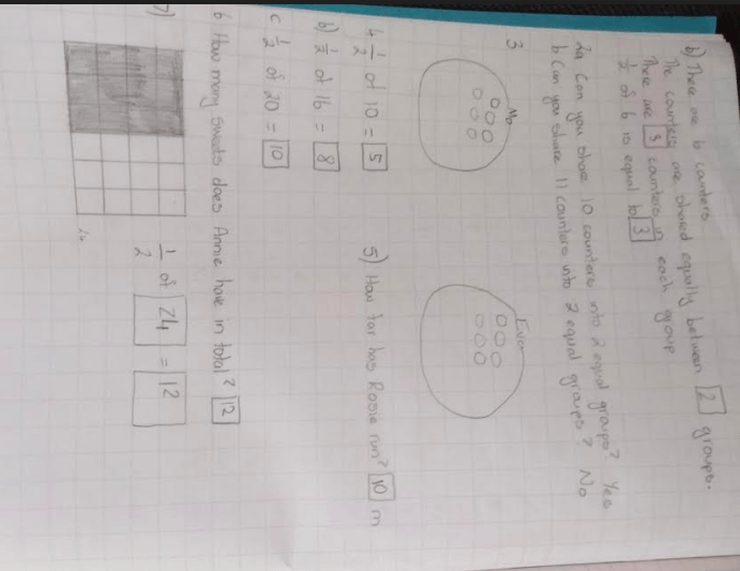 b) There are 6 counters
The counters are shared equally between 2 groups.
There are 3 counters in each group
1/2 of 6 is equal to 3
2a Can you share 10 counters into 2 equal groups? Yes
b Can you share 11 counters into 2 equal groups? No
3
Mo
Evan
4 1/2 of 10 = 5
5) How far has Rosie run? 10 m
b) 1/2 of 16 = 8
c 1/2 of 20 = 10
6 How many sweets does Annie have in total? 12
7)
1/2 of 24 = 12